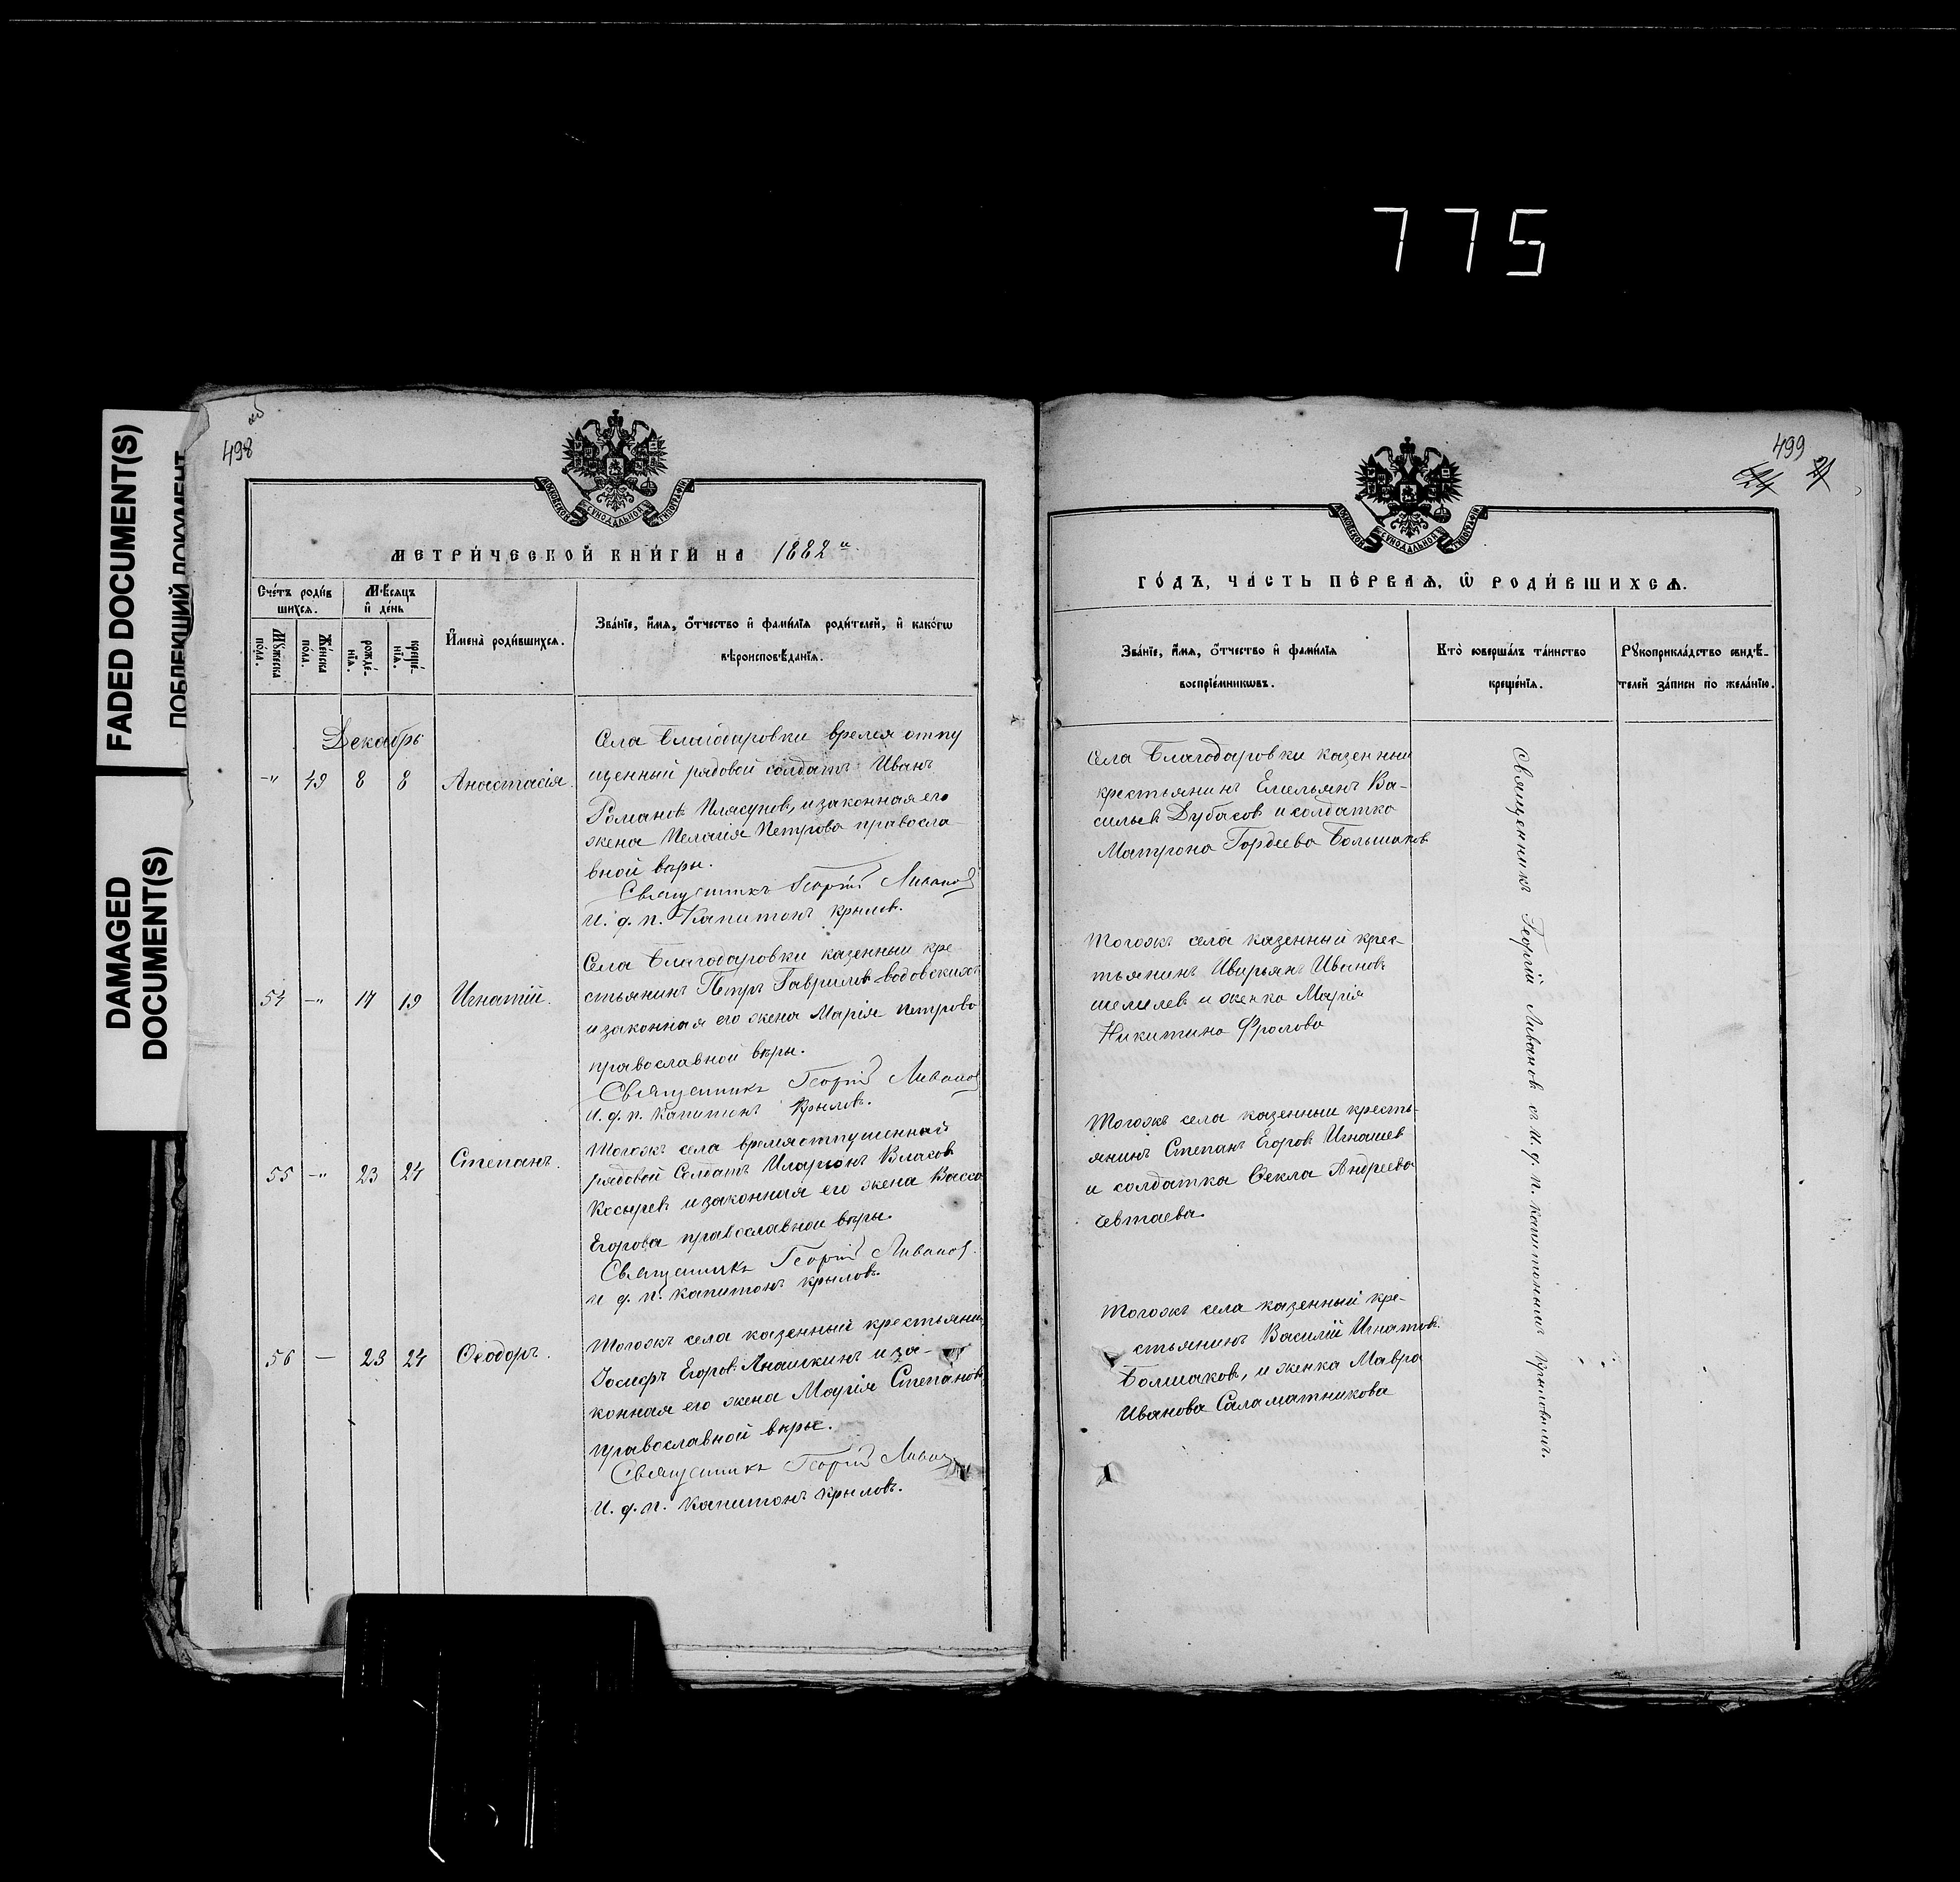 775
FADED DOCUMENT(S)
ПОБЛЕКШИЙ ДОКУМЕНТ
DAMAGED
DOCUMENT(S)
498
МОСКОВСКОЙ СѴНОДАЛЬНОЙ ТИПОГРАФІИ
МЕТРИ́ЧЕСКОЙ КНИ́ГИ НА 1882 й
Сче́тъ роди́в
шихсѧ.
Мѣ́сѧцъ
и҆ де́нь
Мꙋ́жеска
по́ла.
Же́нска
по́ла.
рожде́-
нїѧ.
креще́-
нїѧ.
И҆мена̀ роди́вшихсѧ.
Зва́нїе, и҆́мѧ, ѻ҆́тчество и҆ фами́лїѧ роди́телей, и҆ како́гѡ
вѣроисповѣ́данїѧ.
Декабрь
-"- 49 8 8 Анастасія.
Села Благодаровки времен отпу
щенный рядовой солдатъ Иванъ
Романовъ Плясуновъ, и законная его
жена Пелагія Петрова правосла-
вной вѣры.
Священникъ Георгій Ливановъ
И. д. п. Капитонъ Крыловъ.
54 -"- 17 19 Игнатій.
Села Благодаровки казенный кре
стьянинъ Петръ Гавриловъ Водовскихъ
и законная его жена Марія Петрова
православной вѣры.
Священникъ Георгій Ливановъ
И. д. п. Капитонъ Крыловъ.
55 -"- 23 24 Степанъ.
Тогожъ села времяотпущенный
рядовой Солдатъ Иларіонъ Власовъ
Косыревъ и законная его жена Васса
Егорова православной вѣры.
Священникъ Георгій Ливановъ.
И д. п. Капитонъ Крыловъ.
56 — 23 24 Ѳеодоръ.
Тогожъ села казенный крестьянинъ
Іосифъ Егоровъ Анашкинъ и за-
конная его жена Марія Степанова
православной вѣры.
Священникъ Георгій Ливановъ
И. д. п. Капитонъ Крыловъ.
499
МОСКОВСКОЙ СѴНОДАЛЬНОЙ ТИПОГРАФІИ
ГО́ДЪ, ЧА́СТЬ ПЕ́РВАѦ, Ѡ҆ РОДИ́ВШИХСѦ.
Зва́нїе, и҆́мѧ, ѻ҆́тчество и҆ фами́лїѧ
воспрїе́мникѡвъ.
Кто̀ соверша́лъ та́инство
креще́нїѧ.
Рꙋкоприкла́дство свидѣ́-
телей за́писи по жела́нїю.
Села Благодаровки казенный
крестьянинъ Емельянъ Ва-
сильевъ Дубасовъ и солдатка
Матрона Гордеева Большаков
Тогожъ села казенный крес-
тьянинъ Ивирьянъ Ивановъ
Шемилевъ и женка Марія
Никитина Фролова
Тогожъ села казенный кресть-
янинъ Степанъ Егоровъ Игнашев
и солдатка Ѳекла Андреева
Евтаева
Тогожъ села казенный кре-
стьянинъ Василій Игнатовъ
Болшаковъ, и женка Мавра
Иванова Саламатникова
Священникъ Георгій Ливановъ съ И. д. п. Капитономъ Крыловымъ.